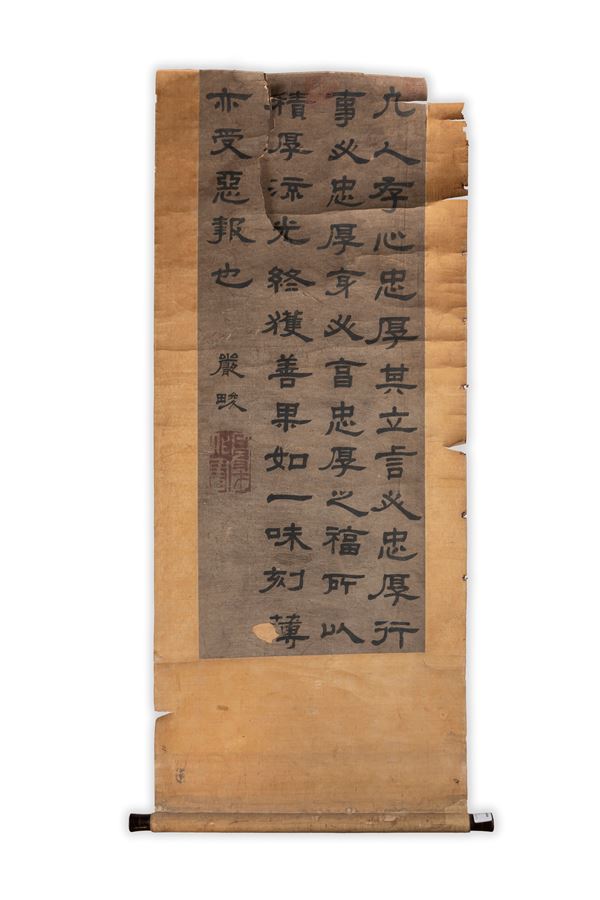 凡人存心忠厚其立言必忠厚行
事必忠厚身必亯忠厚之福所以
積厚流光終獲善果如一味刻薄
亦受惡報也
嚴畯